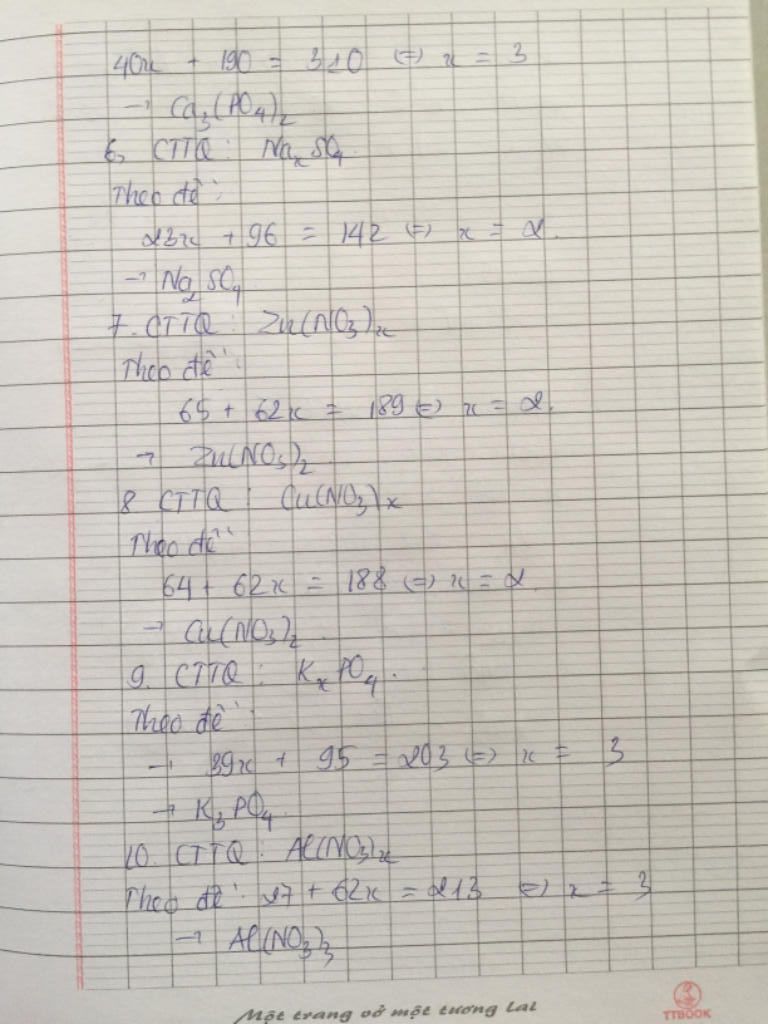 40x + 190 = 310 ⇔ x = 3
→ Ca₃(PO₄)₂
6, CTTQ : NaₓSO₄.
Theo đề :
23x + 96 = 142 ⇔ x = 2.
→ Na₂SO₄
7. CTTQ : Zn(NO₃)ₓ
Theo đề :
65 + 62x = 189 ⇔ x = 2.
→ Zn(NO₃)₂
8 CTTQ : Cu(NO₃)ₓ
Theo đề :
64 + 62x = 188 ⇔ x = 2
→ Cu(NO₃)₂
9. CTTQ : KₓPO₄.
Theo đề :
→ 39x + 95 = 203 ⇔ x = 3
→ K₃PO₄
10. CTTQ : Al(NO₃)ₓ
Theo đề : 27 + 62x = 213 ⇔ x = 3
→ Al(NO₃)₃
Một trang vở một tương lai
TTBOOK